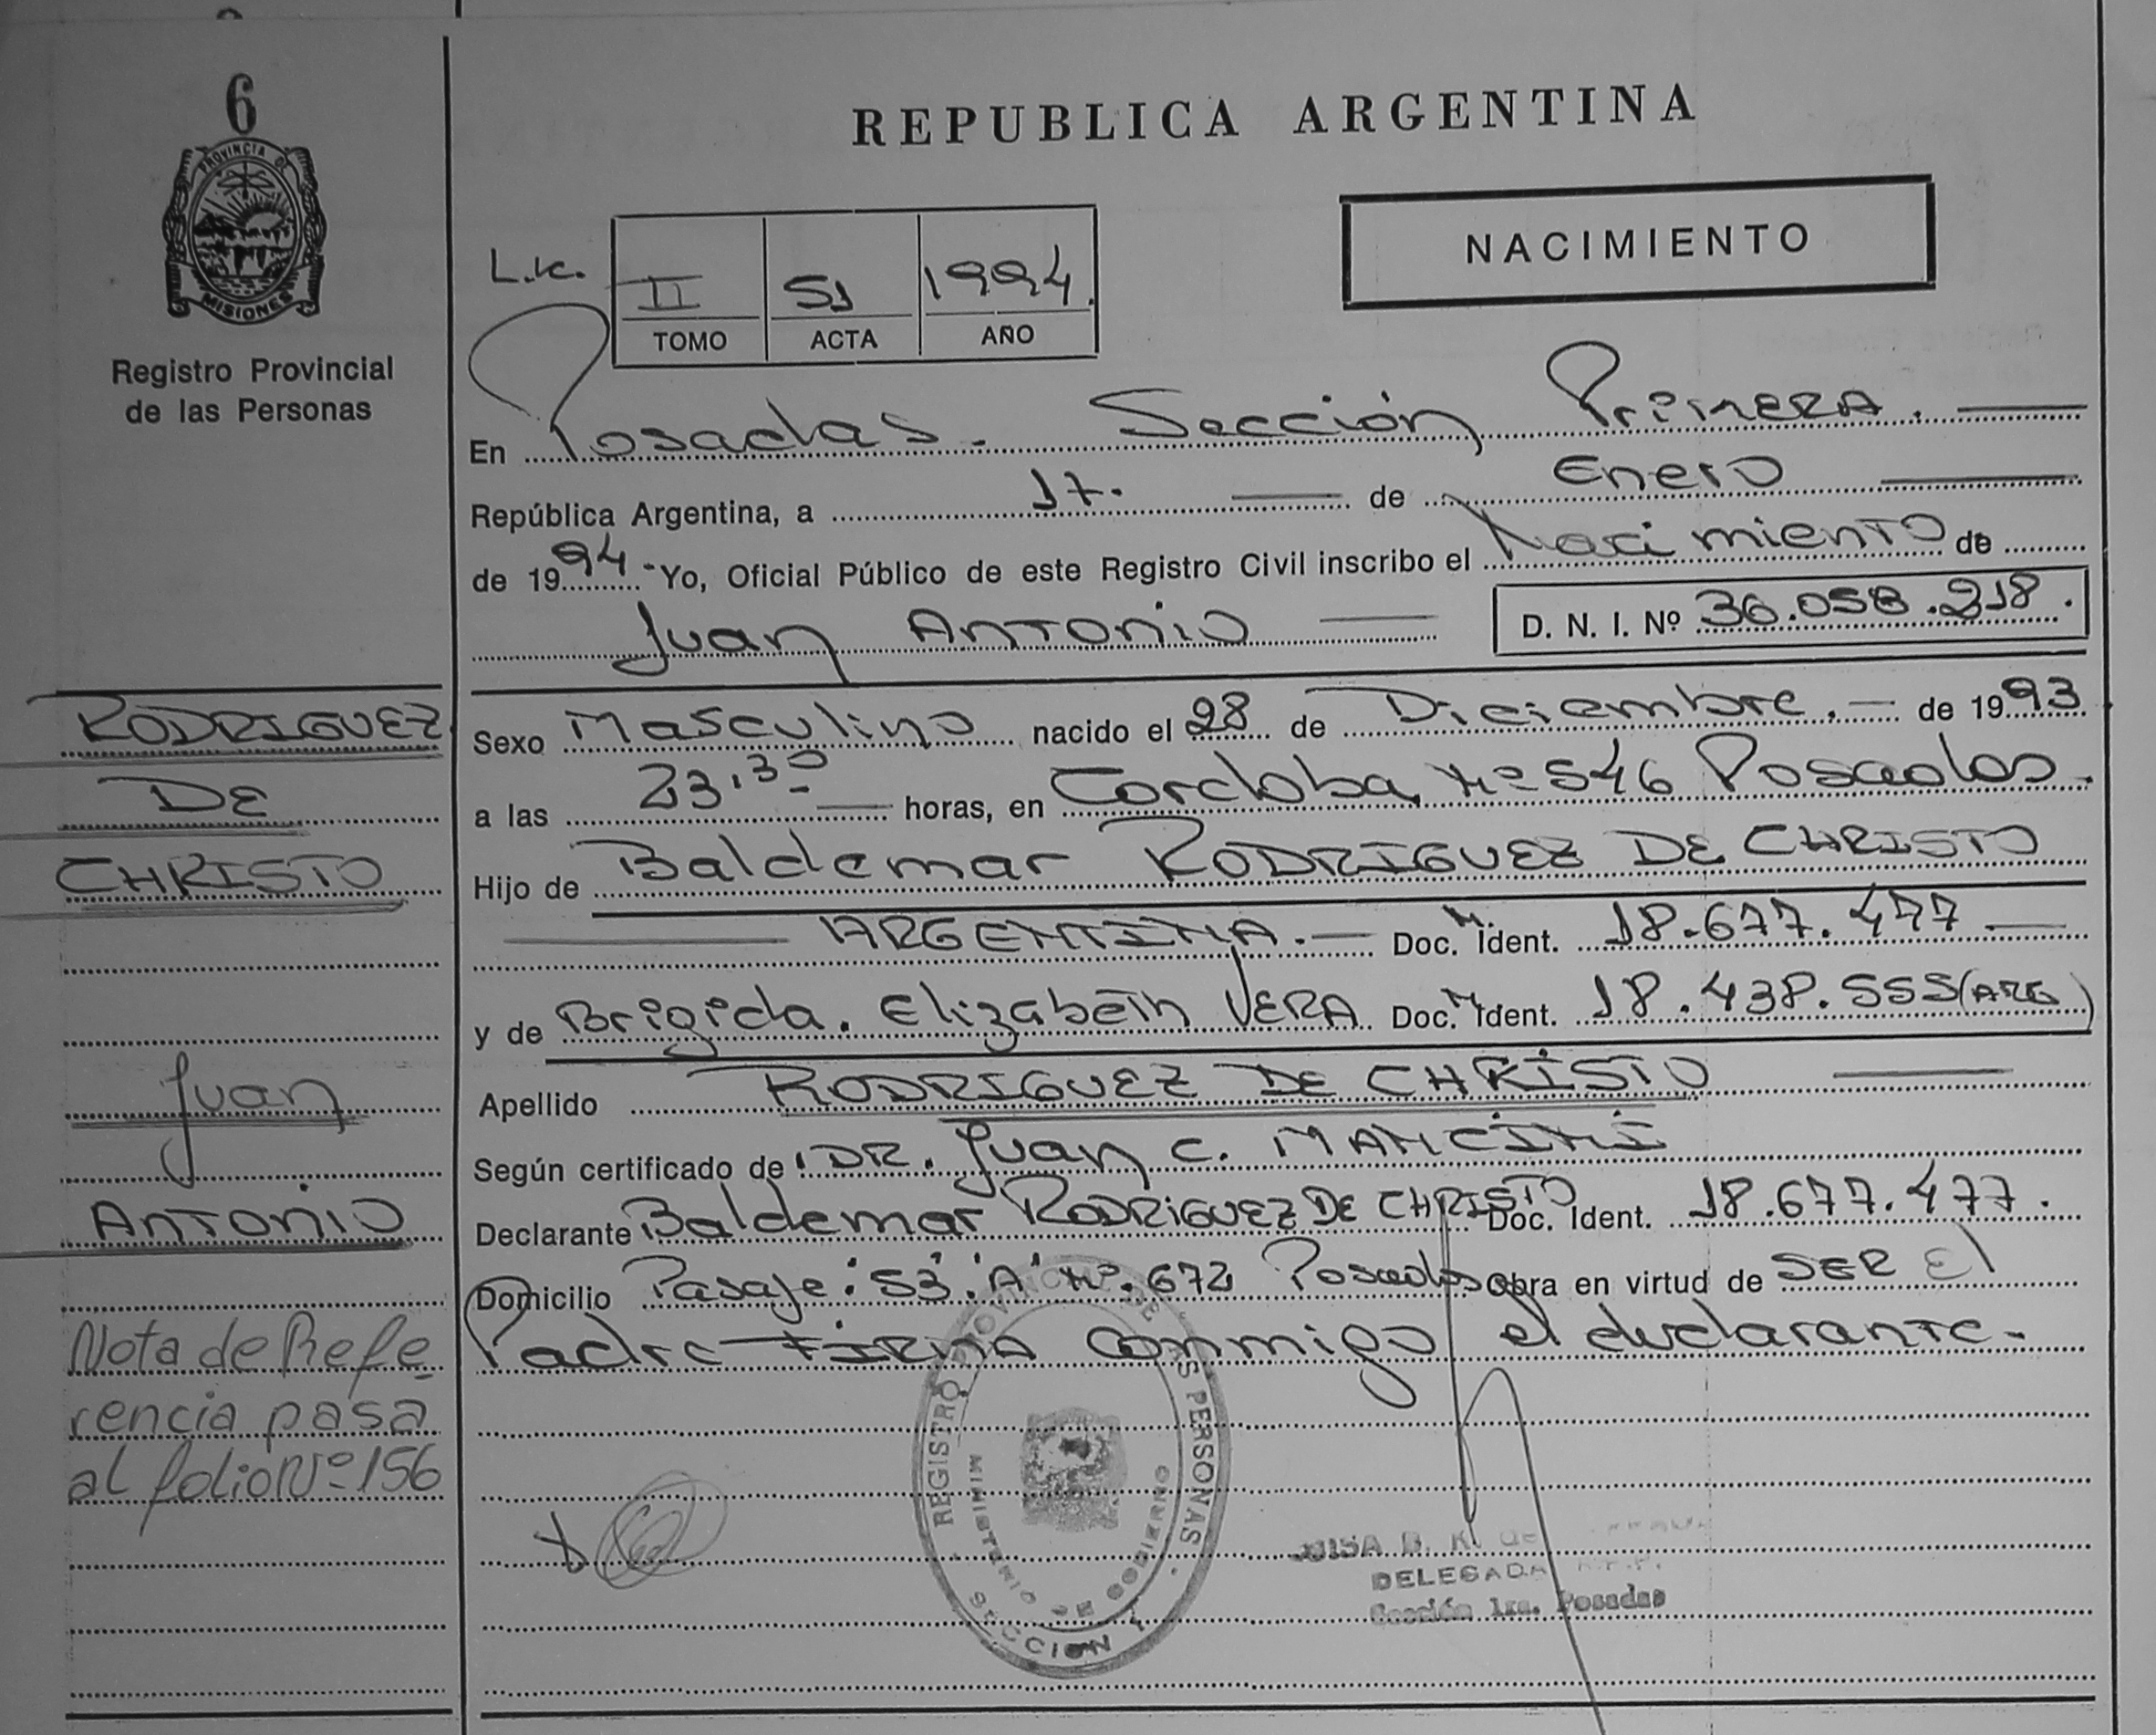 6
PROVINCIA DE
MISIONES
Registro Provincial
de las Personas
REPUBLICA ARGENTINA
NACIMIENTO
L.c.
II 51 1994.
TOMO ACTA AÑO
En Posadas. Sección Primera.
República Argentina, a 17. de Enero
de 1994 - Yo, Oficial Público de este Registro Civil inscribo el Nacimiento de
Juan Antonio D. N. I. Nº 36.058.218.
Sexo Masculino nacido el 28 de Diciembre. de 1993
a las 23.30 horas, en Cordoba Nº 546 Posadas.
Hijo de Baldemar RODRIGUEZ DE CHRISTO
ARGENTINA. Doc. M. Ident. 18.677.477
y de Brigida. Elizabeth VERA Doc. M. Ident. 18.438.555 (ARG.)
Apellido RODRIGUEZ DE CHRISTO
Según certificado de: DR. Juan C. MANCINI
Declarante Baldemar RODRIGUEZ DE CHRISTO Doc. Ident. 18.677.477.
Domicilio Pasaje: 53 "A" Nº. 672 Posadas Obra en virtud de SER El
Padre FIRMA conmigo el declarante.
RODRIGUEZ
DE
CHRISTO
Juan
Antonio
Nota de Refe
rencia pasa
al folio Nº 156
REGISTRO PROVINCIAL DE LAS PERSONAS
MINISTERIO DE GOBIERNO
SECCION 1
DELEGADA
Sección 1ra. Posadas